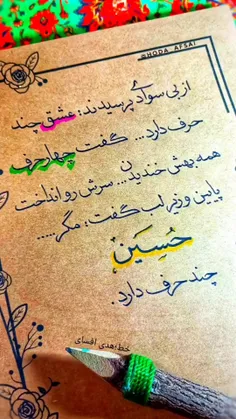 @HODA_AFSAI
از بی سوادے پرسیدند: عشق چند
حرف دارد... گفت چهار حرف
همه بهش خندیدن... سرش رو انداخت
پایین و زیر لب گفت: مگر.....
حُسِین
چند حرف دارد.
خط: هدی افسای